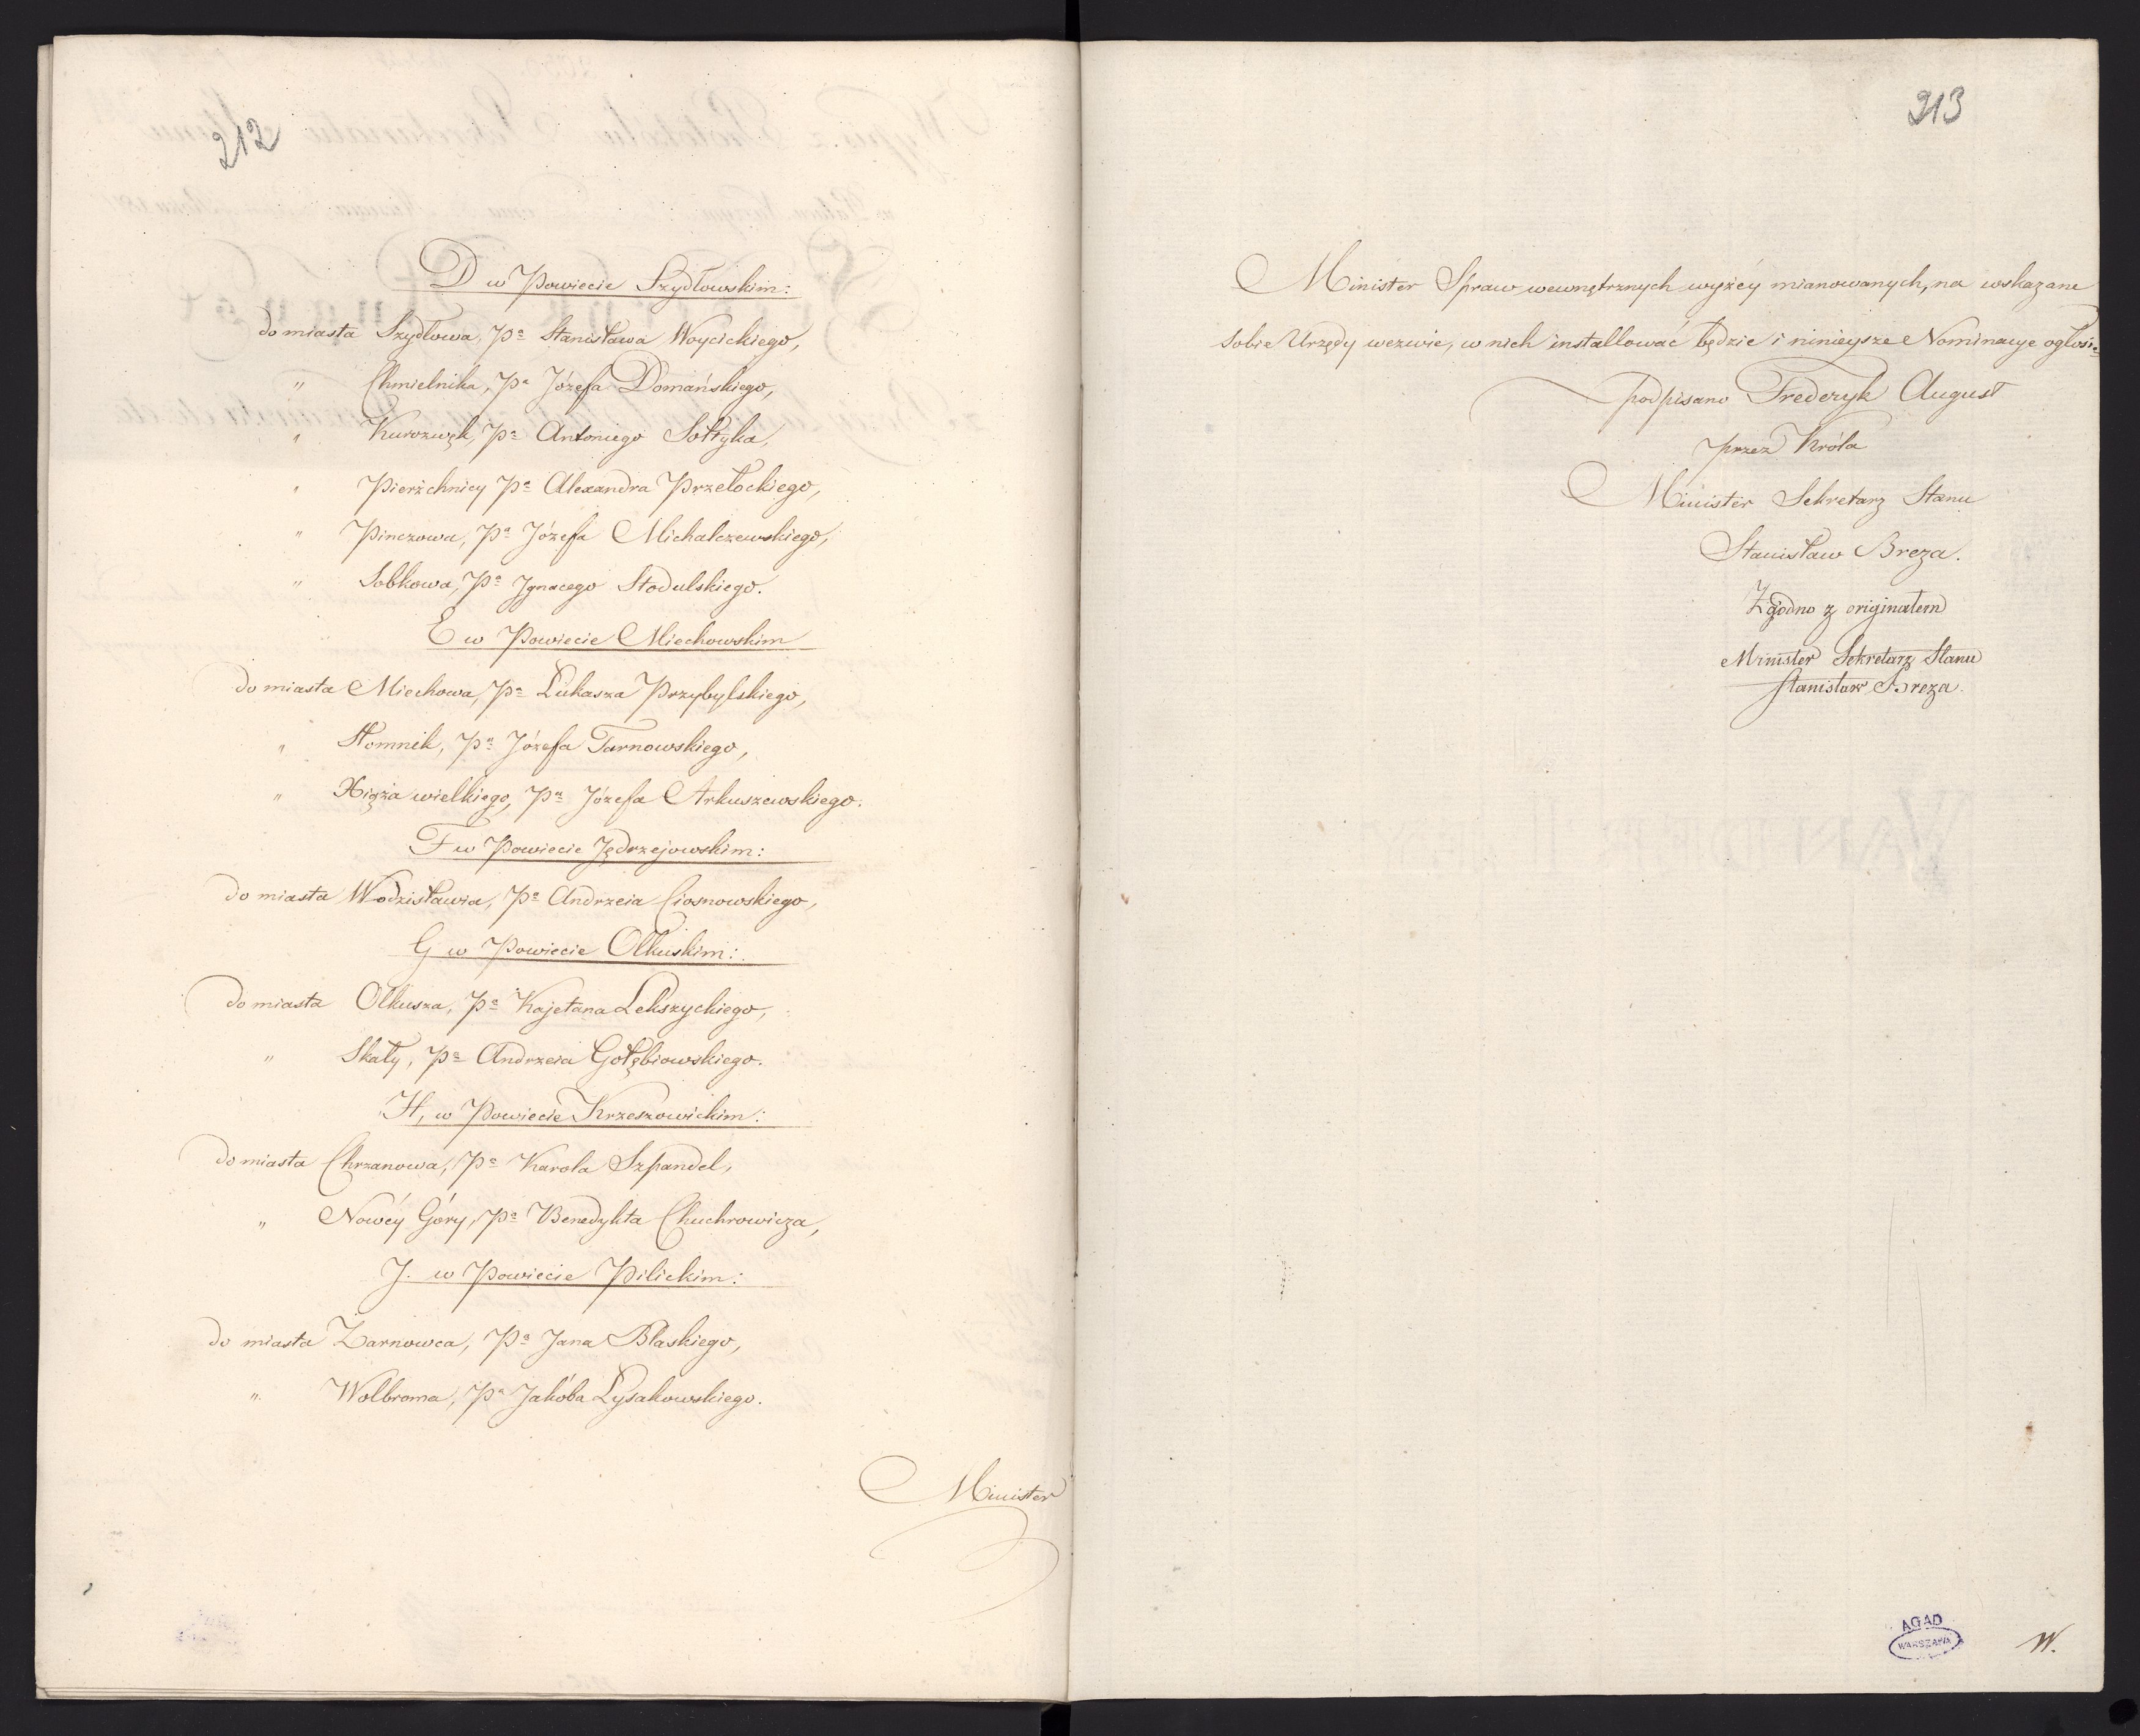 212
D w Powiecie Szydłowskim:
do miasta Szydłowa, Pa Stanisława Woycickiego,
" Chmielnika, Pa Józefa Domańskiego,
" Kurozwęk, Pa Antoniego Sołtyka,
" Pierzchnicy Pa Alexandra Przełockiego,
" Pinczowa, Pa Józefa Michalczewskiego,
" Sobkowa, Pa Jgnacego Stodulskiego.
E w Powiecie Miechowskim
do miasta Miechowa, Pa Łukasza Przybylskiego,
" Słomnik, Pa Józefa Tarnowskiego,
" Xięża wielkiego, Pa Józefa Arkuszewskiego.
F w Powiecie Jędrzejowskim:
do miasta Wodzisławia, Pa Andrzeia Ciosnowskiego,
G w Powiecie Olkuskim:
do miasta Olkusza, Pa Kajetana Lekszyckiego,
" Skały, Pa Andrzeia Gołębiowskiego.
H, w Powiecie Krzeszowickim:
do miasta Chrzanowa, Pa Karola Szpandel,
" Nowéy Góry, Pa Benedykta Chuchrowicza,
J. w Powiecie Pilickim:
do miasta Zarnowca, Pa Jana Blaskiego,
" Wolbroma, Pa Jakóba Łysakowskiego.
Minister
213
Minister Spraw wewnętrznych wyżéy mianowanych, na wskazane
sobie Urzędy wezwie, w nich installować będzie i ninieysze Nominacye ogłosi.
podpisano Frederyk August
przez Króla
Minister Sekretarz Stanu
Stanisław Breza.
Zgodno z originałem
Minister Sekretarz Stanu
Stanisław Breza.
AGAD
WARSZAWA
W.